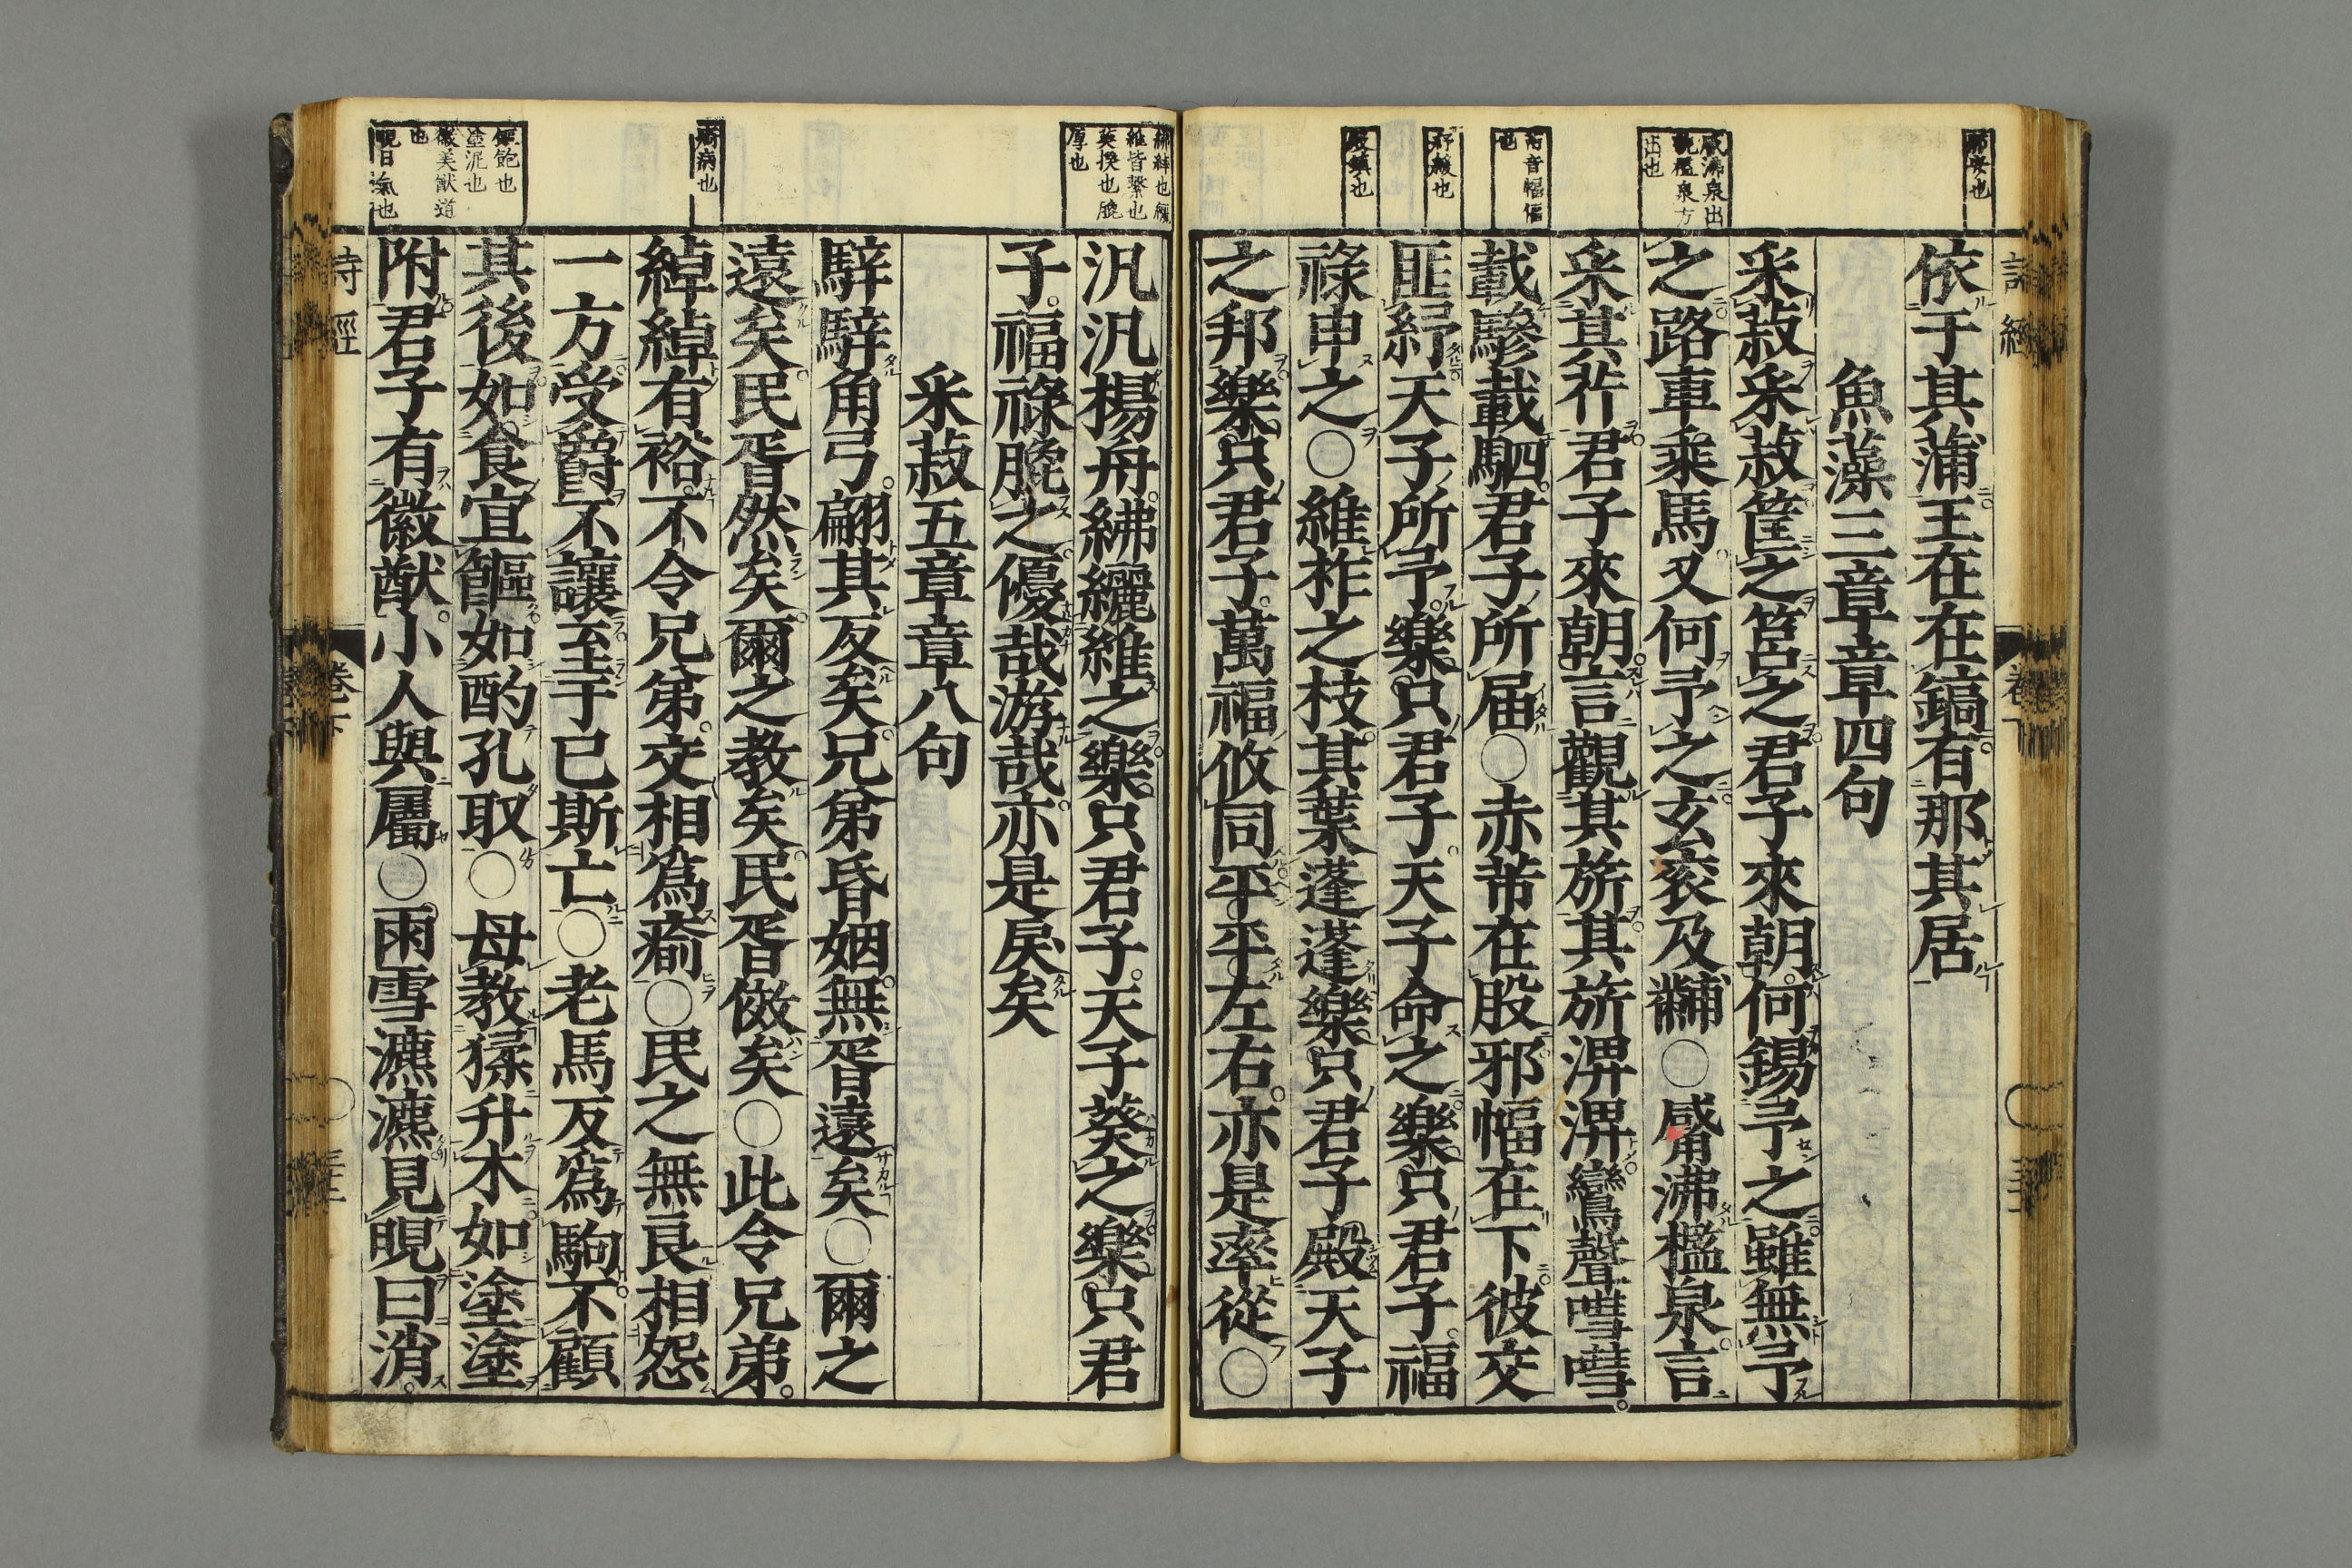 那安也
依于其蒲王在在鎬有那其居
魚藻三章章四句
采菽采菽筐之筥之君子來朝何錫予之雖無予
觱沸泉出
貌檻泉方
出也
之路車乘馬又何予之玄袞及黼○觱沸檻泉言
采其芹君子來朝言觀其旂其旂淠淠鸞聲嘒嘒
芾音幅偪
也
載驂載駟君子所屆○赤芾在股邪幅在下彼交
紓緩也
匪紓天子所予樂只君子天子命之樂只君子福
殿鎮也
祿申之○維柞之枝其葉蓬蓬樂只君子殿天子
之邦樂只君子萬福攸同平平左右亦是率從○
紼繂也纚
維皆繫也
葵揆也膍
厚也
汎汎楊舟紼纚維之樂只君子天子葵之樂只君
子福祿膍之優哉游哉亦是戾矣
采菽五章章八句
騂騂角弓翩其反矣兄弟昏姻無胥遠矣○爾之
遠矣民胥然矣爾之教矣民胥傚矣○此令兄弟
瘉病也
綽綽有裕不令兄弟交相為瘉○民之無良相怨
一方受爵不讓至于已斯亡○老馬反為駒不顧
饇飽也
塗泥也
徽美猷道
也
晛日氣也
其後如食宜饇如酌孔取○母教猱升木如塗塗
附君子有徽猷小人與屬○雨雪瀌瀌見晛曰消
詩經
卷下